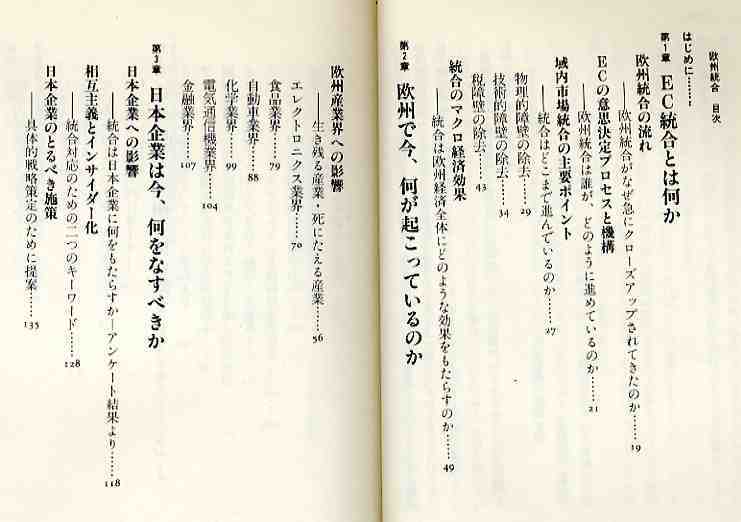 欧州統合 目次
はじめに……
第1章 EC統合とは何か
欧州統合の流れ
――欧州統合がなぜ急にクローズアップされてきたのか……19
ECの意思決定プロセスと機構
――欧州統合は誰が、どのように進めているのか……21
域内市場統合の主要ポイント
――統合はどこまで進んでいるのか……27
物理的障壁の除去……29
技術的障壁の除去……34
税障壁の除去……43
統合のマクロ経済効果
――統合は欧州経済全体にどのような効果をもたらすのか……49
第2章 欧州で今、何が起こっているのか
欧州産業界への影響
――生き残る産業・死にたえる産業……56
エレクトロニクス業界……70
食品業界……79
自動車業界……88
化学業界……99
電気通信機業界……104
金融業界……107
第3章 日本企業は今、何をなすべきか
日本企業への影響
――統合は日本企業に何をもたらすか―アンケート結果より……118
相互主義とインサイダー化
――統合対応のための二つのキーワード……128
日本企業のとるべき施策
――具体的戦略策定のために提案……135